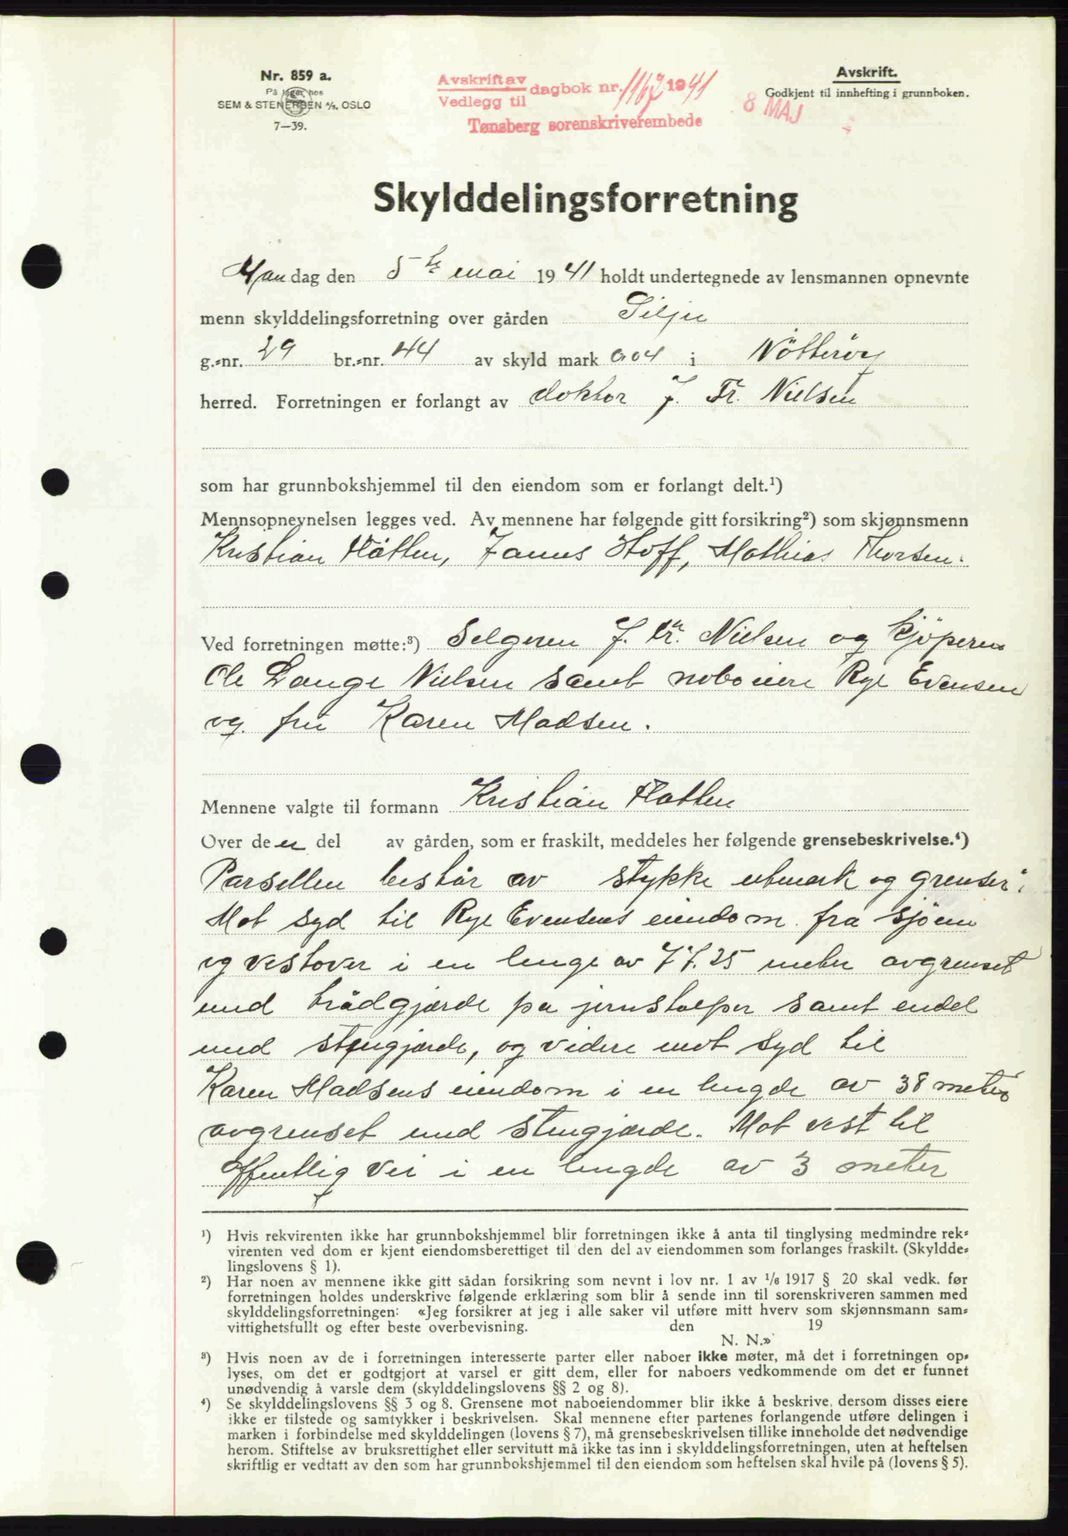 Nr. 859 a.
På lager hos
SEM & STENERSEN A/S, OSLO
7—39.
Avskrift av
Vedlegg til
dagbok nr. 1167 1941
Tønsberg sorenskriverembede
8 MAJ
Avskrift.
Godkjent til innhefting i grunnboken.
Skylddelingsforretning
Mandag den 5te mai 1941 holdt undertegnede av lensmannen opnevnte
menn skylddelingsforretning over gården Silju
g.-nr. 29 br.-nr. 44 av skyld mark 0,04 i Nötteröy
herred. Forretningen er forlangt av doktor J. Fr. Nielsen
som har grunnbokshjemmel til den eiendom som er forlangt delt.¹)
Mennsopnevnelsen legges ved. Av mennene har følgende gitt forsikring²) som skjønnsmenn
Kristian Flåtten, Hoff, Mathias Thorsen.
Ved forretningen møtte:³) Selgeren J. Fr. Nielsen og kjöperen
Ole Lange Nielsen samt naboeiere Rye Evensen
og fru Karen Madsen.
Mennene valgte til formann Kristian Flåtten
Over den del av gården, som er fraskilt, meddeles her følgende grensebeskrivelse.⁴)
Parsellen består av stykke utmark og grenser:
Mot syd til Rye Evensens eiendom fra sjöen
og vestover i en lenge av 77.25 meter avgrenset
med trådgjærde på jernstolper samt endel
med stengjærde, og videre mot syd til
Karen Madsens eiendom i en lengde av 38 meter
avgrenset med stengjærde. Mot vest til
offentlig vei i en lengde av 3 meter
¹) Hvis rekvirenten ikke har grunnbokshjemmel blir forretningen ikke å anta til tinglysing medmindre rek-
virenten ved dom er kjent eiendomsberettiget til den del av eiendommen som forlanges fraskilt. (Skyldde-
lingslovens § 1).
²) Har noen av mennene ikke gitt sådan forsikring som nevnt i lov nr. 1 av 1/6 1917 § 20 skal vedk. før
forretningen holdes underskrive følgende erklæring som blir å sende inn til sorenskriveren sammen med
skylddelingsforretningen: «Jeg forsikrer at jeg i alle saker vil utføre mitt hverv som skjønnsmann sam-
vittighetsfullt og efter beste overbevisning. den 19
N. N.»
³) Hvis noen av de i forretningen interesserte parter eller naboer ikke møter, må det i forretningen op-
lyses, om det er godtgjort at varsel er gitt dem, eller for naboers vedkommende om det er funnet
unødvendig å varsle dem (skylddelingslovens §§ 2 og 8).
⁴) Se skylddelingslovens §§ 3 og 8. Grensene mot naboeiendommer blir ikke å beskrive, dersom disses eiere
ikke er tilstede og samtykker i beskrivelsen. Skal mennene efter partenes forlangende utføre delingen i
marken i forbindelse med skylddelingen (lovens § 7), må grensebeskrivelsen tillike inneholde det nødvendige
herom. Stiftelse av bruksrettighet eller servitutt må ikke tas inn i skylddelingsforretningen, uten at heftelsen
skriftlig er vedtatt av den som har grunnbokshjemmel til den eiendom som heftelsen skal hvile på (lovens § 5).